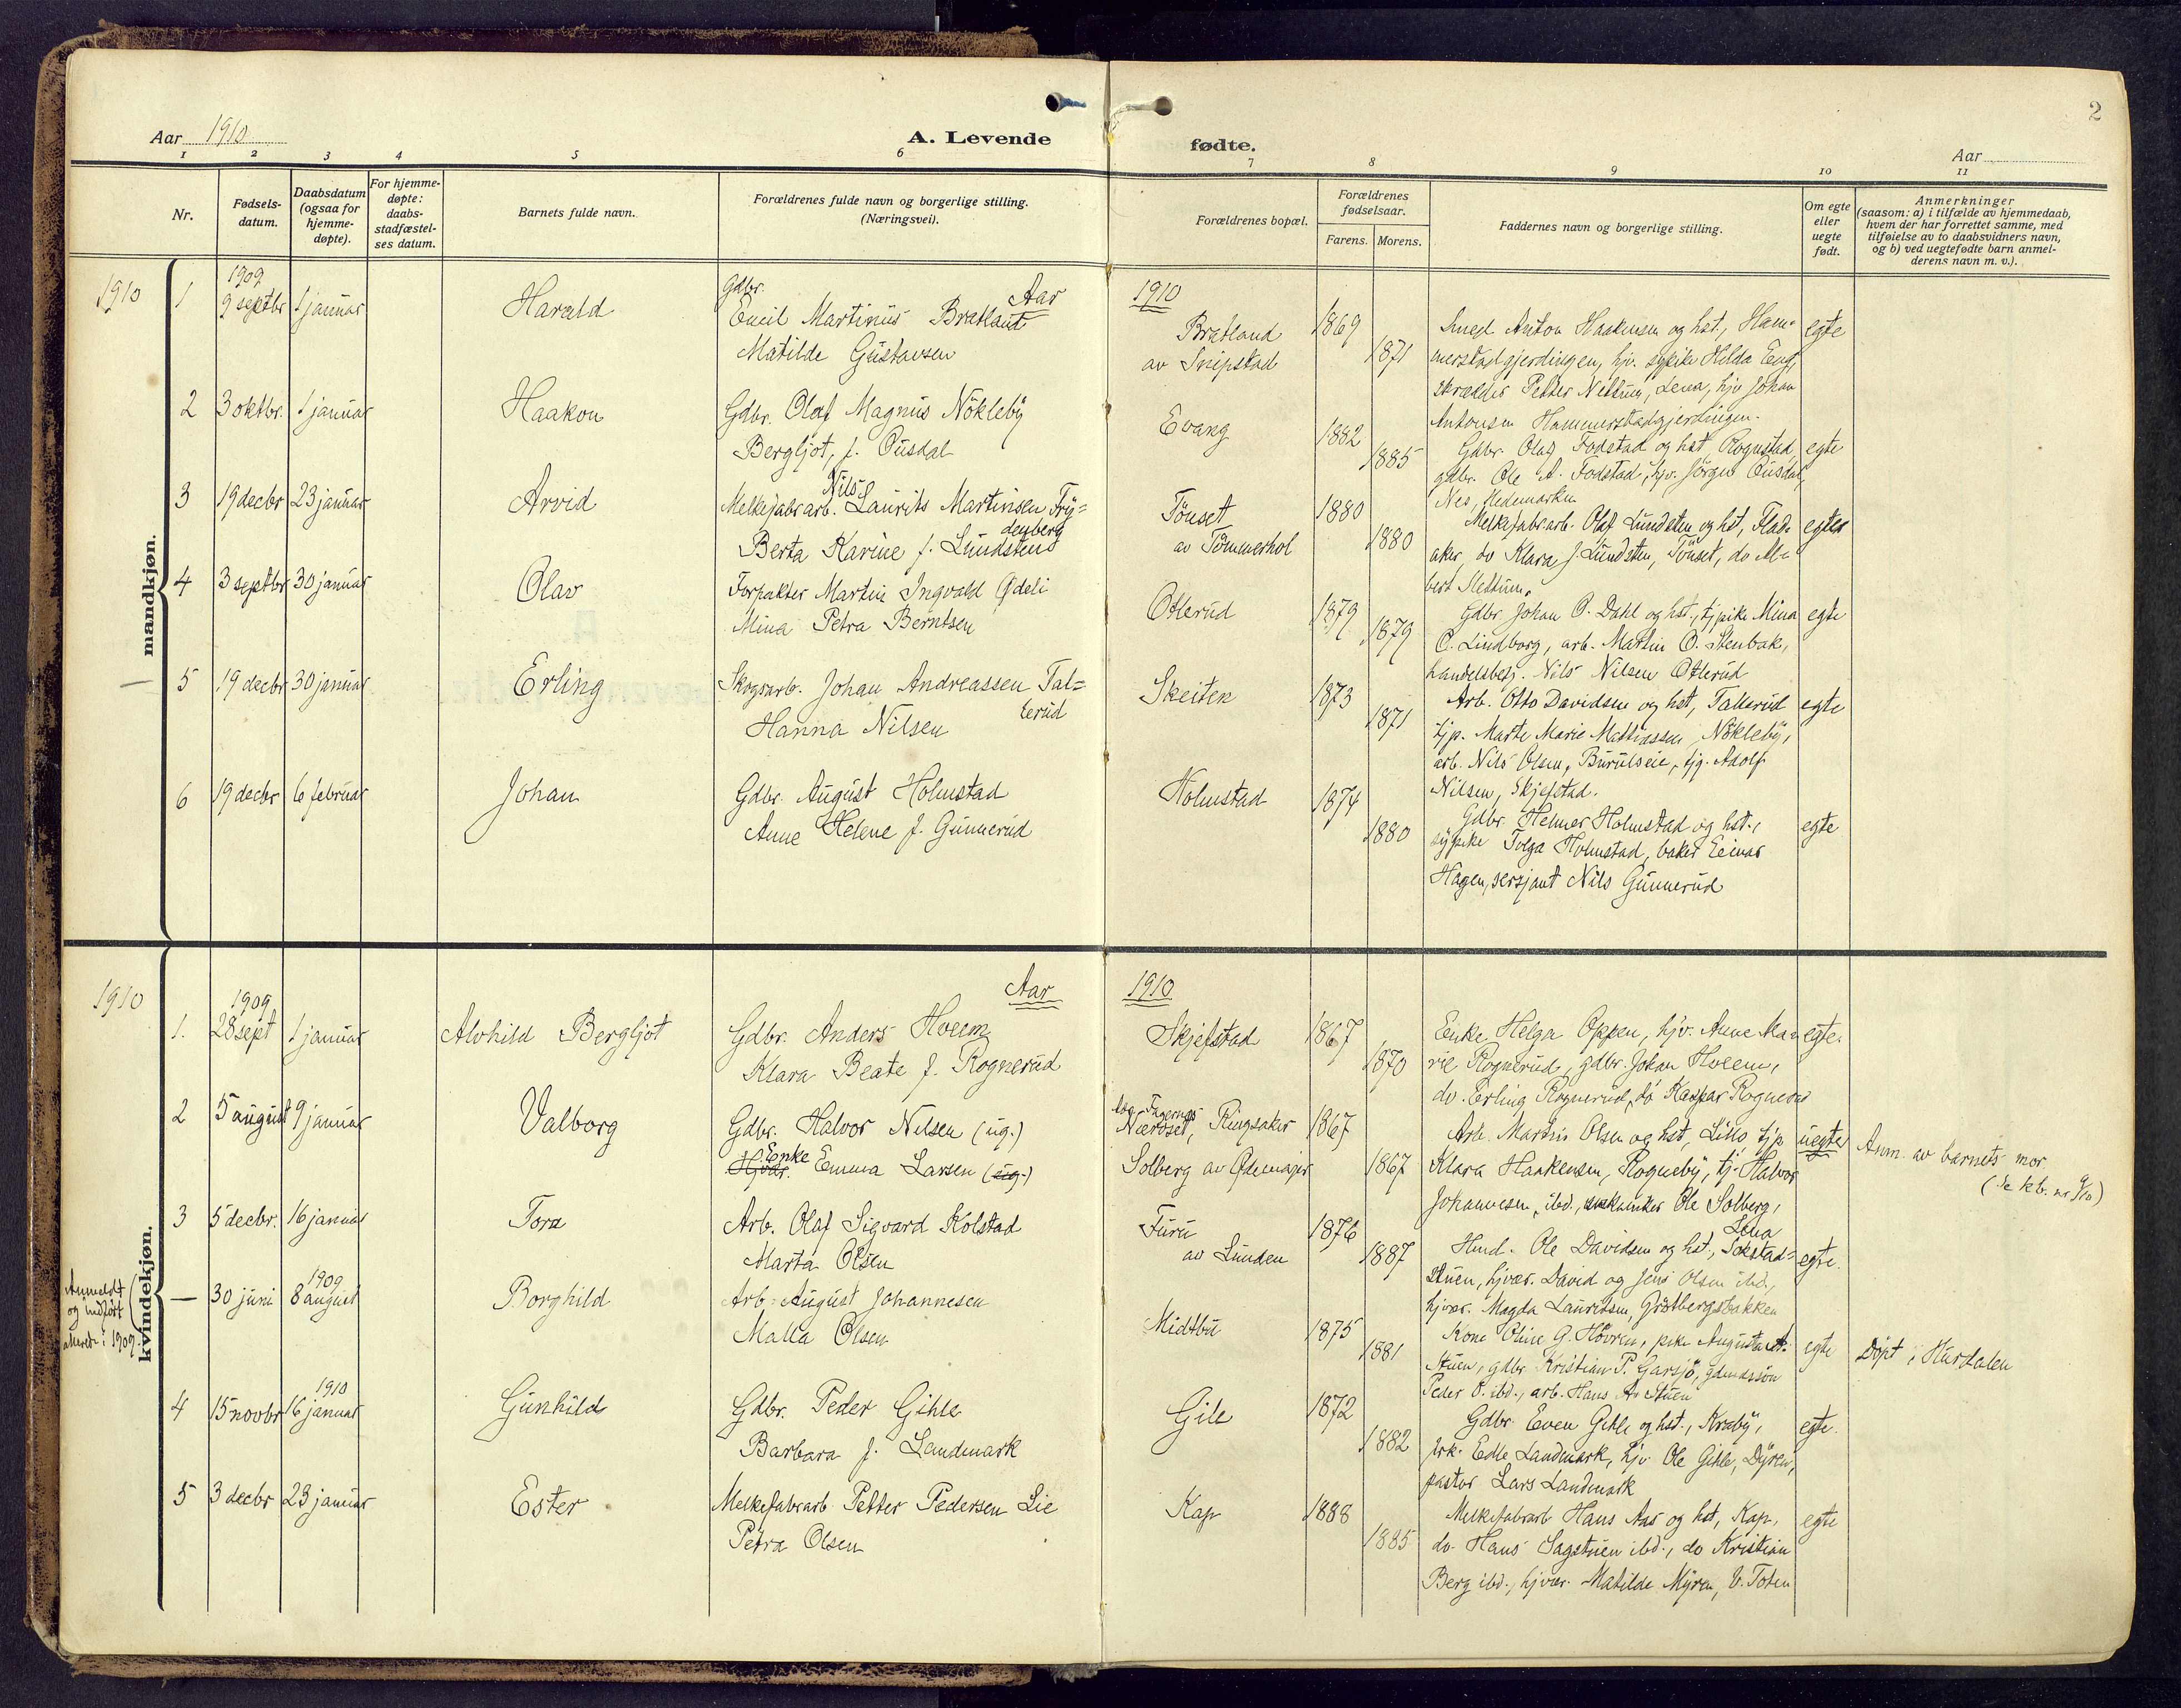 2
Aar 1910
A. Levende
fødte.
Aar
1 2 3 4 5 6 7 8 9 10 11
Nr.
Fødsels-
datum.
Daabsdatum
(ogsaa for
hjemme-
døpte).
For hjemme-
døpte:
daabs-
stadfæstel-
ses datum.
Barnets fulde navn.
Forældrenes fulde navn og borgerlige stilling.
(Næringsvei).
Forældrenes bopæl.
Forældrenes
fødselsaar.
Farens. Morens.
Faddernes navn og borgerlige stilling.
Om egte
eller
uegte
født.
Anmerkninger
(saasom: a) i tilfælde av hjemmedaab,
hvem der har forrettet samme, med
tilføielse av to daabsvidners navn,
og b) ved uegtefødte barn anmel-
derens navn m. v.).
mandkjøn.
1910
Aar
1910
1
1909
9 septbr
1 januar
Harald
Gdbr.
Emil Martinius Bratland
Matilde Gustavsen
Bratland
av Snipstad
1869
1871
Smed Anton Haakensen og hst., Ham-
merstadgjerdingen, hjv. sypike Hilda Eng,
skrædder Petter Nettum, Lena, hjv Johan
Antonsen Hammerstadgjerdingen.
egte
2
3 oktbr.
1 januar
Haakon
Gdbr. Olaf Magnus Nökleby
Bergljot, f. Ousdal
Evang
1882
1885
Gdbr. Olaf Fodstad og hst, Rognstad,
gdbr. Ole A. Fodstad, hjv. Jörgen Ousdal,
Nes, Hedemarken
egte
3
19 decbr
23 januar
Arvid
Nils
Melkefabrarb. Laurits Martinsen Fry=
denberg
Berta Karine f. Lundsten
Tönset
av Tømmerhol
1880
1880
Melkefabrarb. Olaf Lundsten og hst, Flad-
aker, do Klara J. Lundsten, Tönset, do Al-
bert Slettum.
egte
4
3 septbr
30 januar
Olav
Forpakter Martin Ingvald Ødeli
Mina Petra Berntsen
Otterud
1879
1879
Gdbr. Johan O. Dahl og hst., tj pike Mina
C. Lindborg, arb. Martin O. Stenbak,
handelsbetj. Nils Nilsen Otterud
egte
5
19 decbr
30 januar
Erling
Skogsarb. Johan Andreassen Tal=
lerud
Hanna Nilsen
Skeiten
1873
1871
Arb. Otto Davidsen og hst, Tallerud
tjp. Marte Marie Mathiassen Nökleby,
arb. Nils Olsen, Burulseie, tjg. Adolf
Nilsen, Skjefstad.
egte
6
19 decbr
6 februar
Johan
Gdbr. August Holmstad
Anne Helene f. Gunnerud
Holmstad
1874
1880
Gdbr. Helmer Holmstad og hst.,
sypike Tolga Holmstad, baker Einar
Hagen, sersjant Nils Gunnerud
egte
kvindekjøn.
1910
Aar
1910
1.
1909
28 sept
1 januar
Alvhild Bergljot
Gdbr. Anders Hveem
Klara Beate f. Rognerud
Skjefstad
1867
1870
Enke Helga Oppen, hjv. Anne Ma-
rie Rognerud, gdbr. Johan Hveem,
do. Erling Rognerud, do Kaspar Rognerud
egte.
2
5 august
9 januar
Valborg
Gdbr. Halvor Nilsen (ug.)
Enke
Hjvær. Emma Larsen (ug.)
Fagernes
Nærdset, Ringsaker
Solberg av Ødemajer
1867
1867
Arb. Martin Olsen og hst, Lillo tjp
Klara Haakensen, Rogneby, tj. Halvor
Johannesen, ibd., mekaniker Ole Solberg,
Lena
uegte
Anm. av barnets mor
(se kb. nr 9/10)
3
5 decbr.
16 januar
Tora
Arb. Olaf Sigvard Kolstad
Marta Olsen
Furu
av Lunden
1876
1887
Hmd. Ole Davidsen og hst., Sekstad-
stuen, hjvær. David og Jens Olsen ibd,
hjvær. Magda Lauritsen, Grötbergsbakken
egte.
Anmeldt
og indført
allerede i 1909.
—
30 juni
1909
8 august
Borghild
Arb. August Johannesen
Malla Olsen
Midtbu
1875
1881
Kone Oline G. Hövren, pike Augusta A.
Stuen, gdbr Kristian P. Garsjö, gdmdssön
Peder O. ibd., arb. Hans A. Stuen
egte
Döpt i Hurdalen
4
15 novbr
1910
16 januar
Gunhild
Gdbr. Peder Gihle
Barbara f. Landmark
Gile
1872
1882
Gdbr. Even Gihle og hst., Kraby,
frk. Edle Landmark, hjv Ole Gihle, Dyren,
pastor Lars Landmark
egte.
5
3 decbr
23 januar
Ester
Melkefabrarb Petter Pedersen Lie
Petra Olsen
Kap
1888
1885
Melkefabrarb Hans Aas og hst, Kap,
do. Hans Sagstuen ibd., do Kristian
Berg ibd., hjvær. Matilde Myren, V. Toten
egte